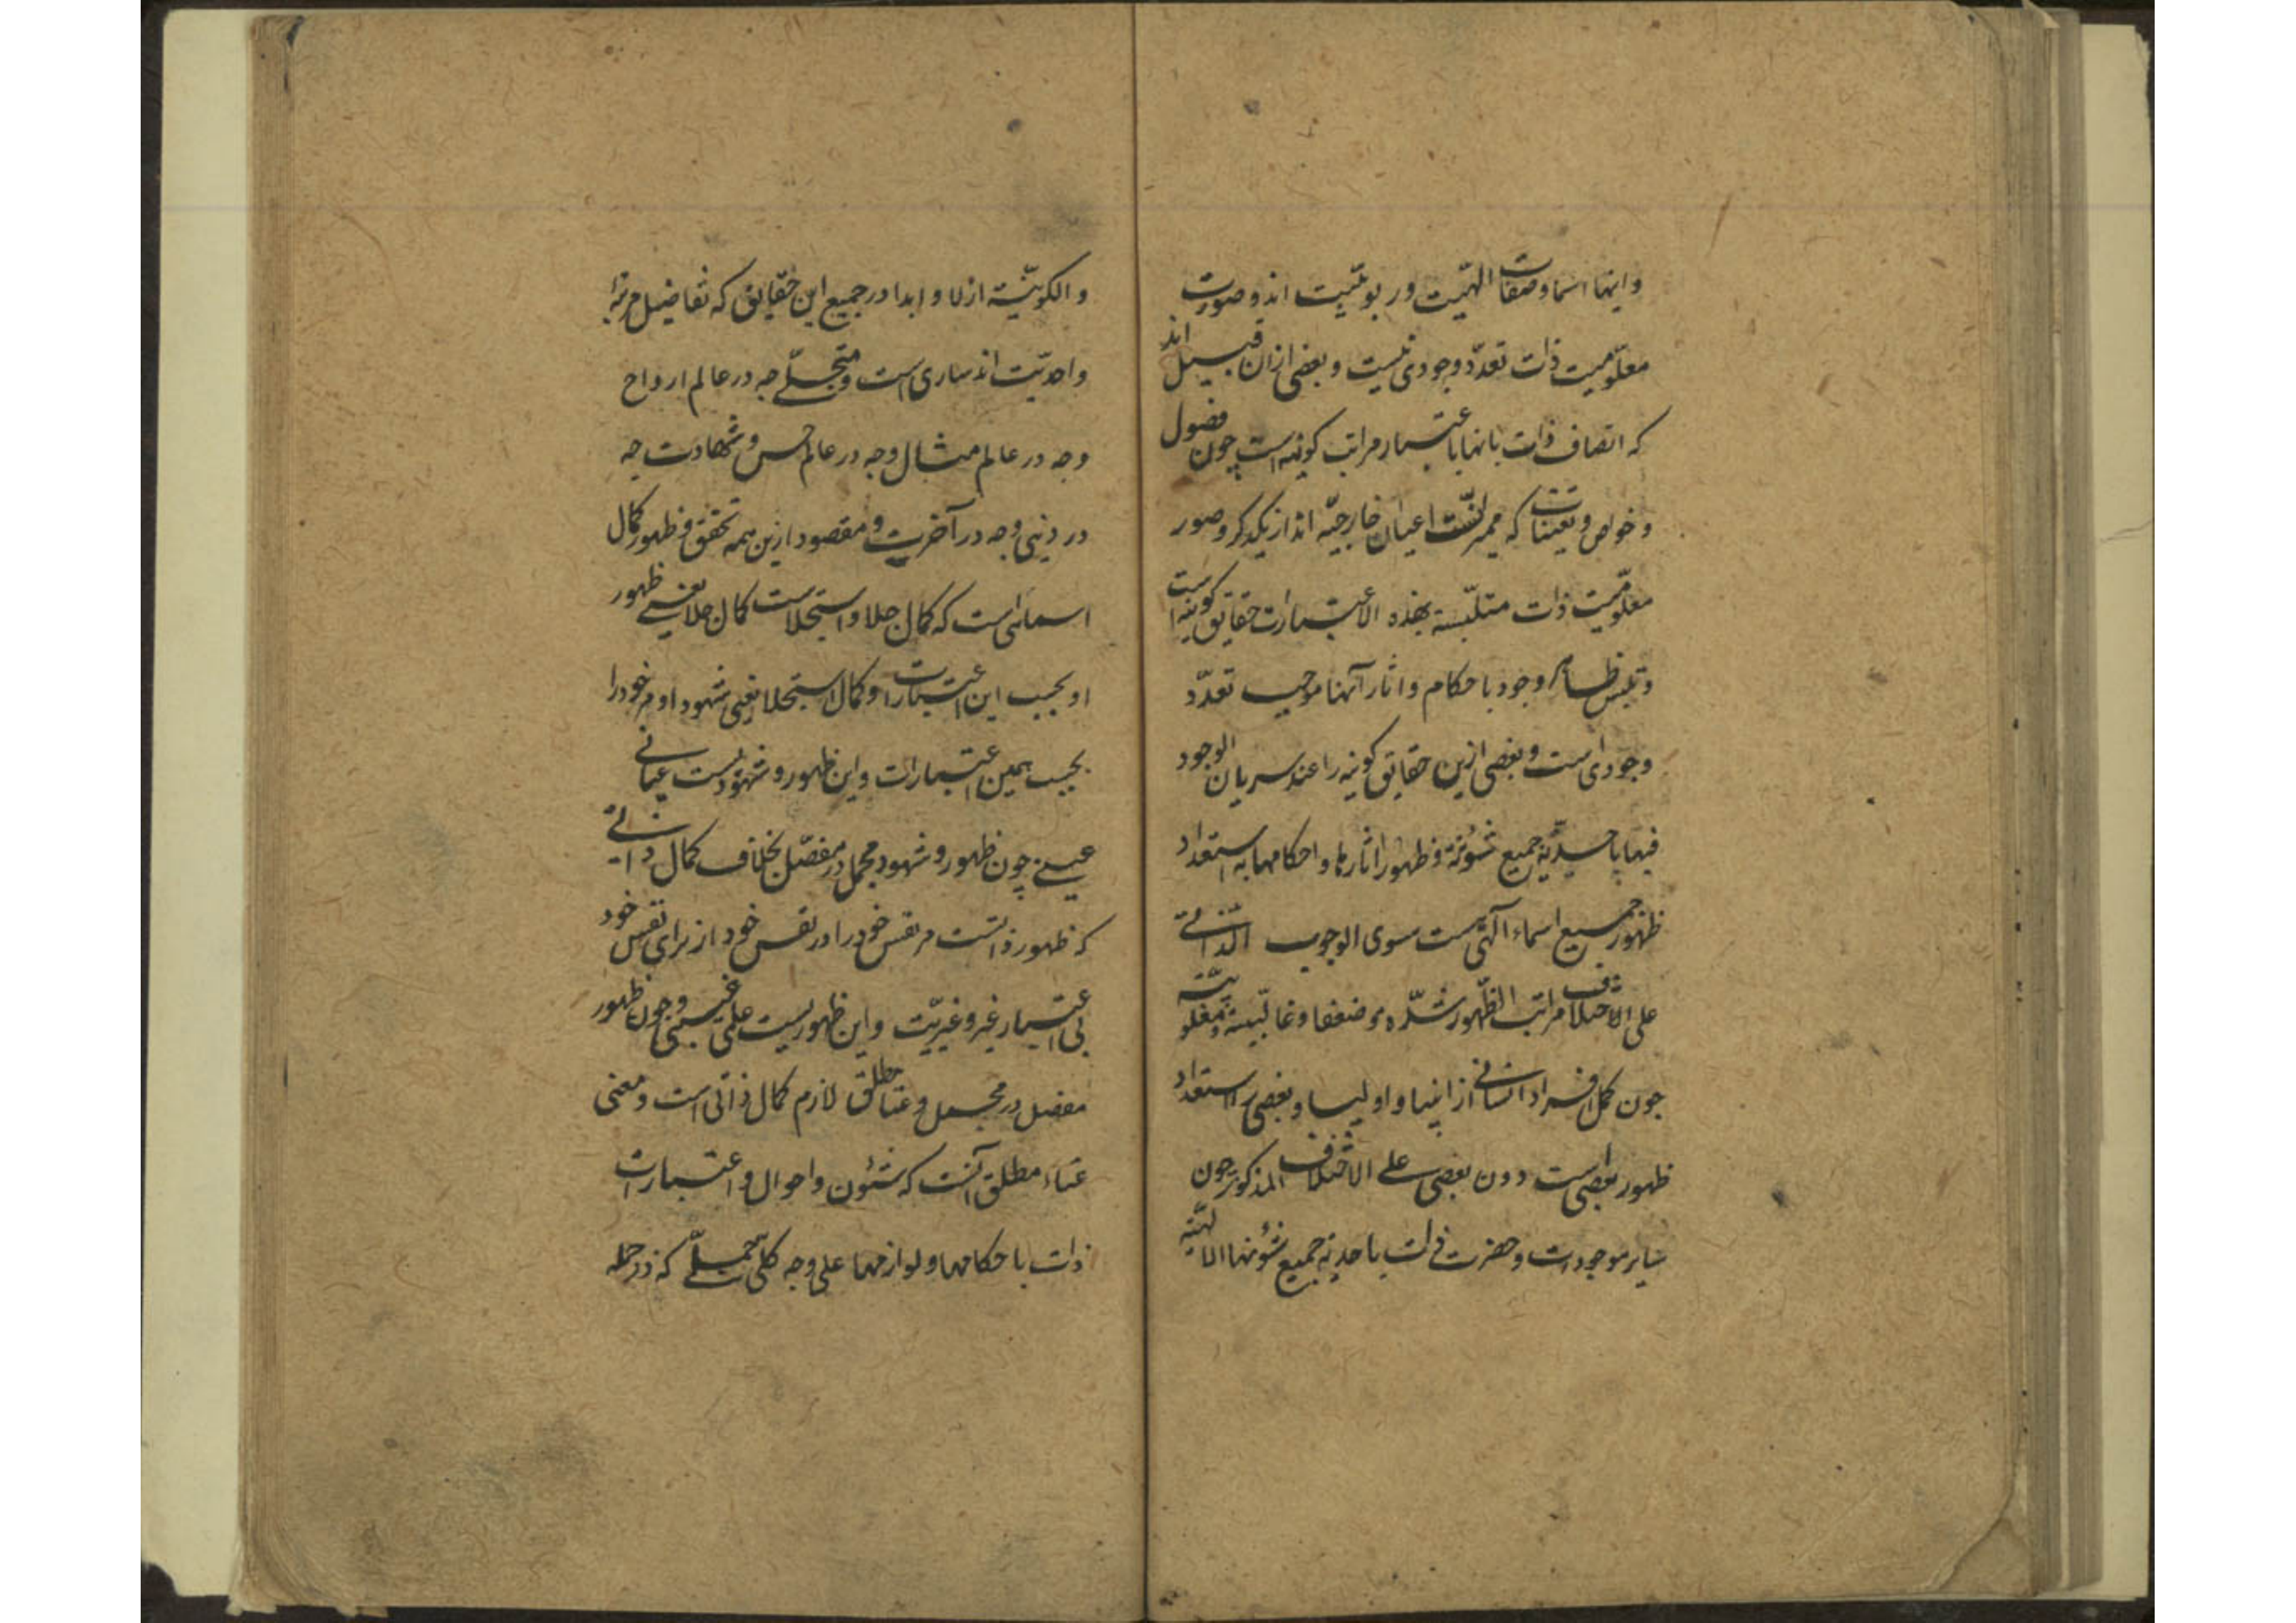 واینها اسما وصفات الهیت و ربوبیت اند و صورت
معلومیت ذات تعدد وجودی نیست و بعضی ازان قبیل اند
که اتصاف ذات بانها باعتبار مراتب کونیه است چون فصول
و خواص و تعینات که ممیزات اعیان خارجیه اند از یکدکر و صور
معلومیت ذات متلبسة بهذه الاعتبارات حقایق کونیه است
و تلبس ظاهر وجود باحکام و اثار آنها موجب تعدد
وجودی است و بعضی ازین حقایق کونیه را عند سریان الوجود
فیها باحدیة جمیع شئونه و ظهور اثارها و احکامها به استعداد
ظهور جمیع اسماء الهی هست سوی الوجوب الذاتی
علی اختلاف مراتب الظهور شدة و ضعفا و غالبیة و مغلوبیة
چون کمل افراد انسانی از انبیا و اولیا و بعضی را استعداد
ظهور بعضی است دون بعضی علی الاختلاف المذکور چون
سایر موجودات و حضرت ذات باحدیة جمیع شئونها الالهیة
و الکونیة ازلا و ابدا در جمیع این حقایق که تفاصیل مرتبه
واحدیت اند ساری است و متجلی چه در عالم ارواح
و چه در عالم مثال و چه در عالم حس و شهادت چه
در دنیی و چه در آخرت و مقصود ازین همه تحقق و ظهور کمال
اسمائی است که کمال جلا و استجلاست کمال جلا یعنی ظهور
او بحسب این اعتبارات و کمال استجلا یعنی شهود او مر خود را
بحسب همین اعتبارات و این ظهور و شهودیست عیانی
عینی چون ظهور و شهود مجمل در مفصل بخلاف کمال ذاتی
که ظهور ذاتست مر نفس خود را در نفس خود از برای نفس خود
بی اعتبار غیر و غیریت و این ظهوریست علمی غیبی چون ظهور
مفصل در مجمل و غنا مطلق لازم کمال ذاتی است و معنی
غناء مطلق آنست که شئون و احوال و اعتبارات
ذات باحکامها و لوازمها علی وجه کلی جملی که در جمله